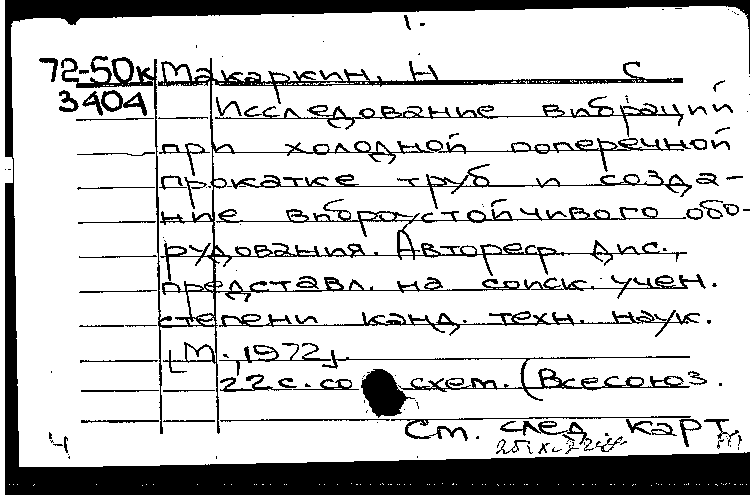 1.
72-50к Макаркин, Н С
3404 Исследование вибраций
при холодной поперечной
прокатке труб и созда-
ние виброустойчивого обо-
рудования. Автореф. дис.,
представл. на соиск. учен.
степени канд. техн. наук.
[М., 1972]
22 с. со схем. (Всесоюз.
См. след. карт.
4